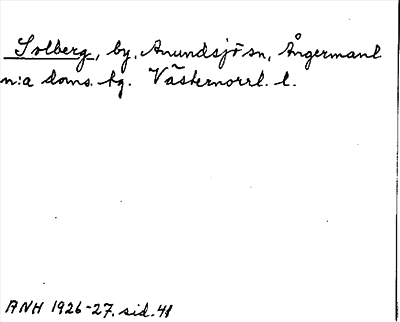 Solberg, by, Anundsjö sn, Ångermanl
n:a doms. hg. Västernorrl. l.
ANH 1926-27. sid. 41